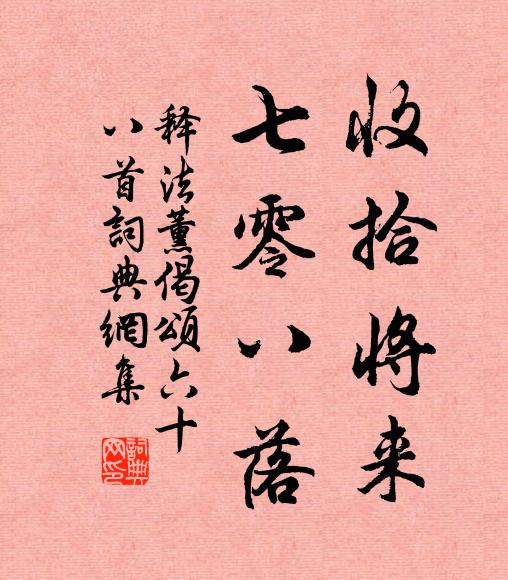 收拾将来
七零八落
释法薰偈颂六十
八首詞典網集
詞典
网印